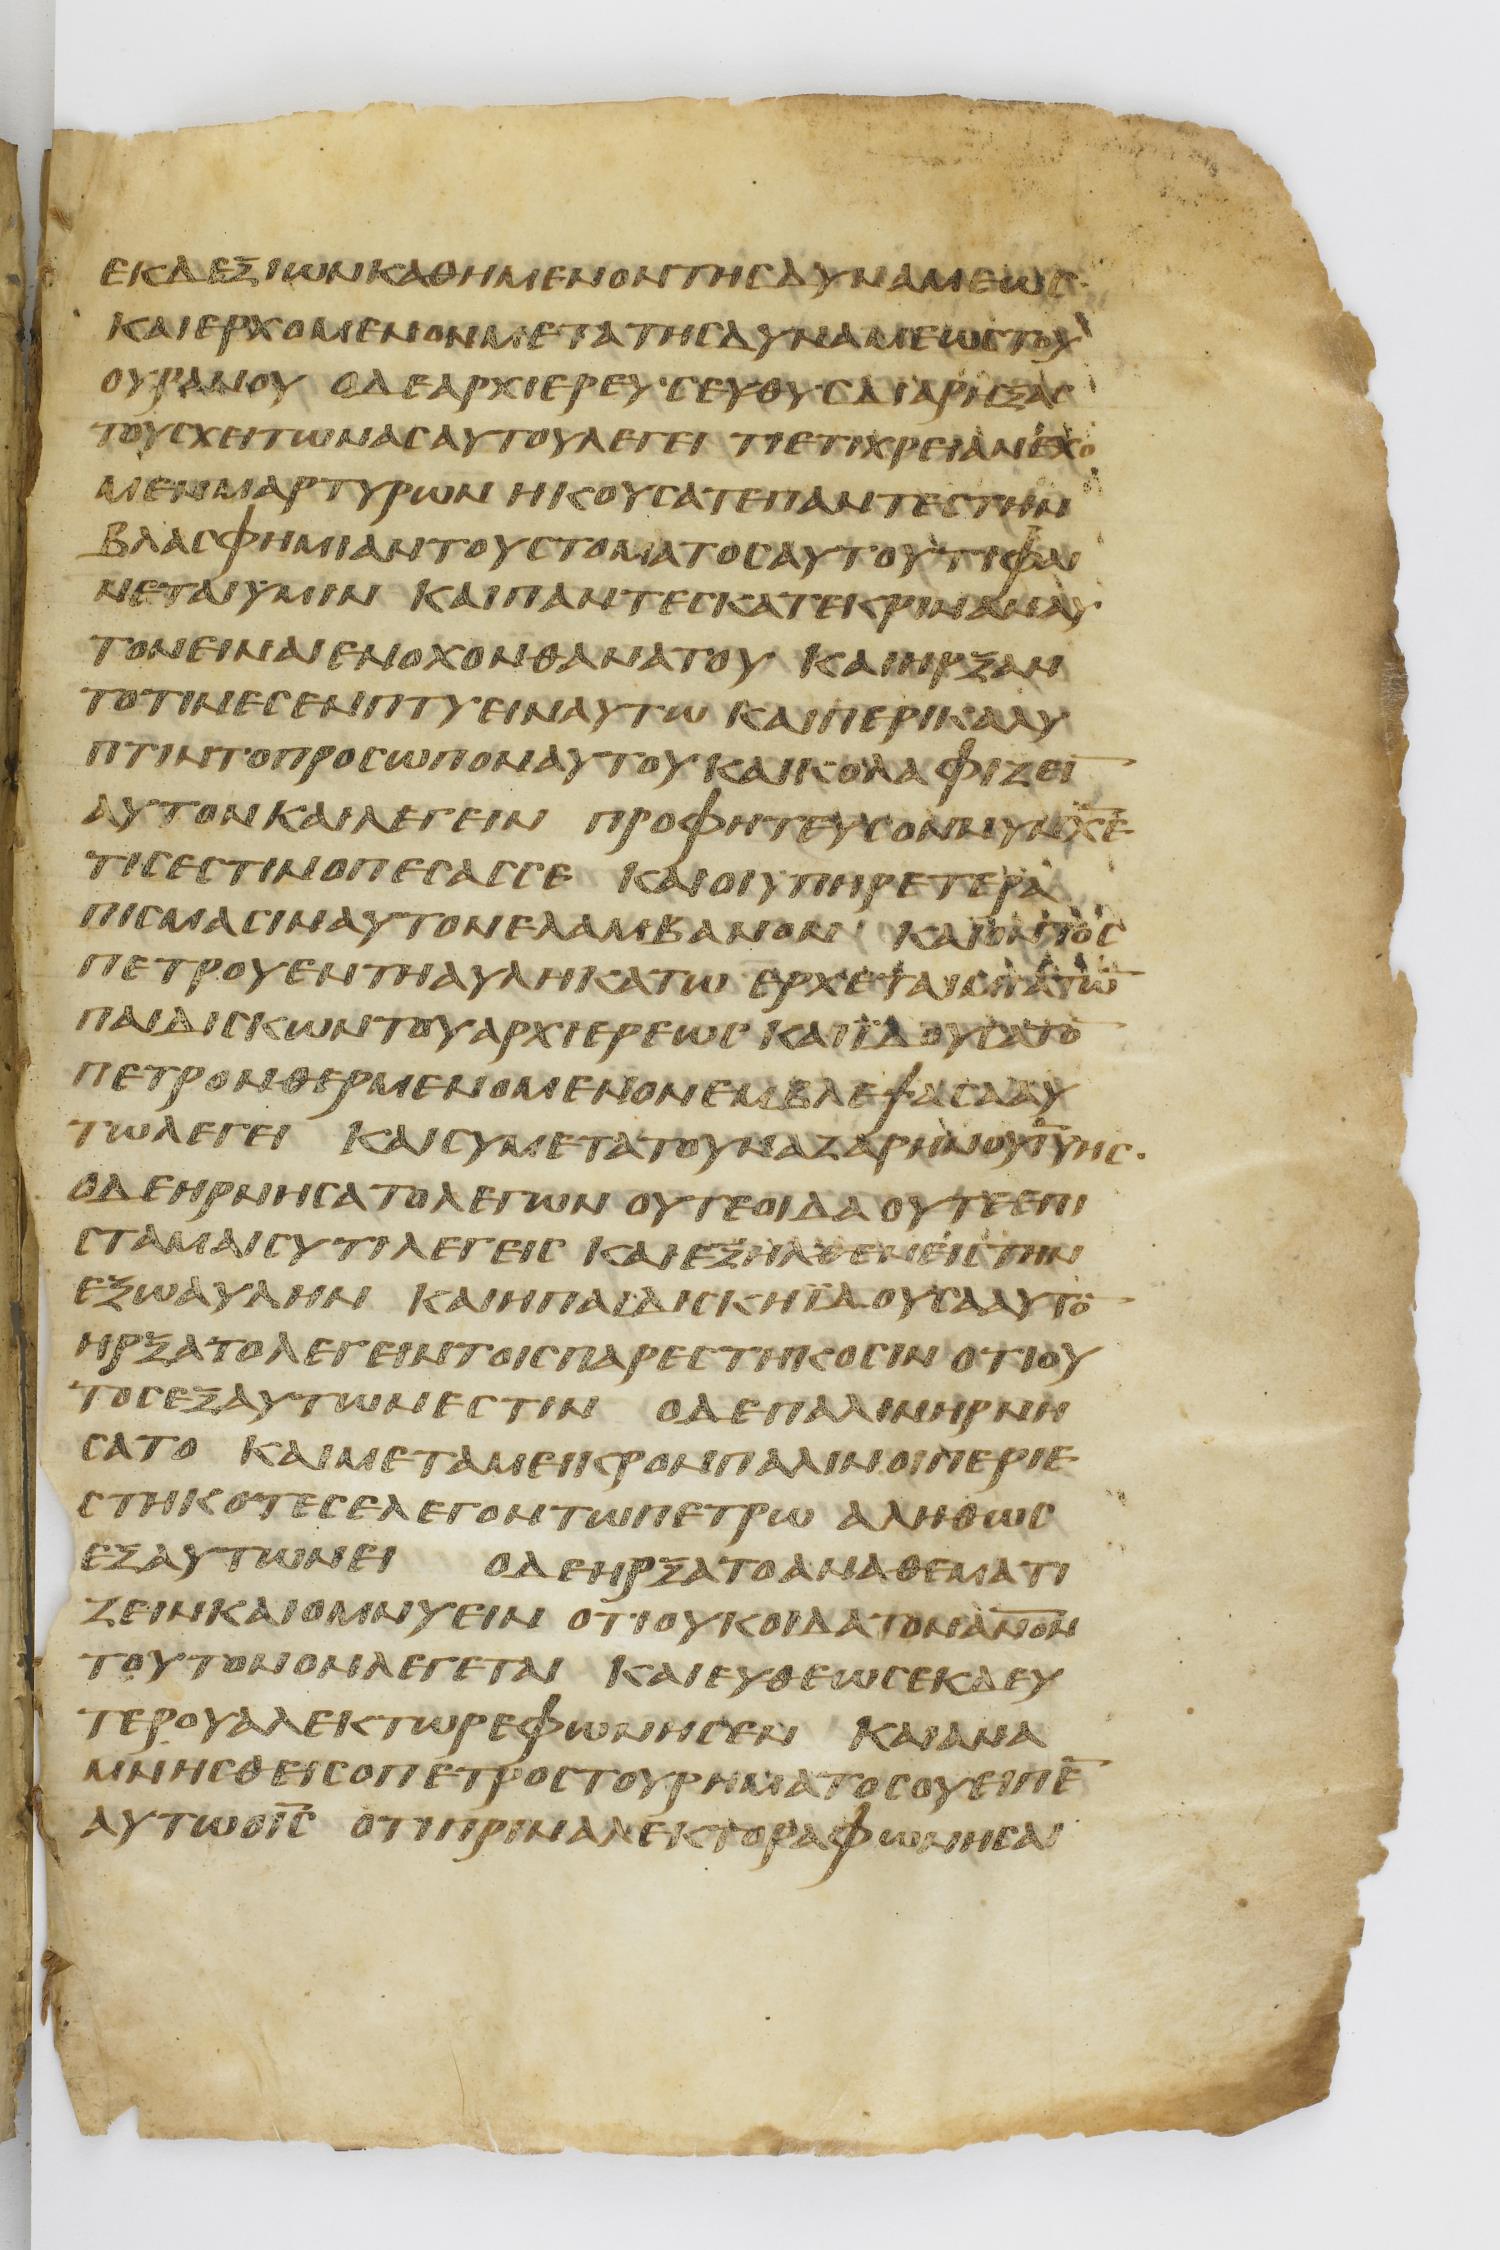 ΕΚΔΕΞΙΩΝΚΑΘΗΜΕΝΟΝΤΗΣΔΥΝΑΜΕΩΣ·
ΚΑΙΕΡΧΟΜΕΝΟΝΜΕΤΑΤΗΣΔΥΝΑΜΕΩΣΤΟΥ
ΟΥΡΑΝΟΥ ΟΔΕΑΡΧΙΕΡΕΥΣΕΥΘΥΣΔΙΑΡΙΞΑΣ
ΤΟΥΣΧΕΙΤΩΝΑΣΑΥΤΟΥΛΕΓΕΙ ΤΙΕΤΙΧΡΕΙΑΝΕΧΟ
ΜΕΝΜΑΡΤΥΡΩΝ ΗΚΟΥΣΑΤΕΠΑΝΤΕΣΤΗΝ
ΒΛΑΣΦΗΜΙΑΝΤΟΥΣΤΟΜΑΤΟΣΑΥΤΟΥΤΙΦΑΙ
ΝΕΤΑΙΥΜΙΝ ΚΑΙΠΑΝΤΕΣΚΑΤΕΚΡΙΝΑΝΑΥ
ΤΟΝΕΙΝΑΙΕΝΟΧΟΝΘΑΝΑΤΟΥ ΚΑΙΗΡΞΑΝ
ΤΟΤΙΝΕΣΕΝΠΤΥΕΙΝΑΥΤΩ ΚΑΙΠΕΡΙΚΑΛΥ
ΠΤΙΝΤΟΠΡΟΣΩΠΟΝΑΥΤΟΥΚΑΙΚΟΛΑΦΙΖΕΙ̅
ΑΥΤΟΝΚΑΙΛΕΓΕΙΝ ΠΡΟΦΗΤΕΥΣΟΝΗΜΙΝΧ̅Ε̅
ΤΙΣΕΣΤΙΝΟΠΕΣΑΣΣΕ ΚΑΙΟΙΥΠΗΡΕΤΕΡΑ
ΠΙΣΜΑΣΙΝΑΥΤΟΝΕΛΑΜΒΑΝΟΝ ΚΑΙΟΝΤΟΣ
ΠΕΤΡΟΥΕΝΤΗΑΥΛΗΚΑΤΩ ΕΡΧΕΤΑΙΜΙΑΤΩ̅
ΠΑΙΔΙΣΚΩΝΤΟΥΑΡΧΙΕΡΕΩΣ ΚΑΙΪΔΟΥΣΑΤΟ̅
ΠΕΤΡΟΝΘΕΡΜΕΝΟΜΕΝΟΝΕΜΒΛΕΨΑΣΑΑΥ
ΤΩΛΕΓΕΙ ΚΑΙΣΥΜΕΤΑΤΟΥΝΑΖΑΡΗΝΟΥΙ̅Υ̅ΗΣ·
ΟΔΕΗΡΝΗΣΑΤΟΛΕΓΩΝ ΟΥΤΕΟΙΔΑΟΥΤΕΕΠΙ
ΣΤΑΜΑΙΣΥΤΙΛΕΓΕΙΣ ΚΑΙΕΞΗΛΘΕΝΕΙΣΤΗΝ
ΕΞΩΑΥΛΗΝ ΚΑΙΗΠΑΙΔΙΣΚΗΪΔΟΥΣΑΑΥΤΟ̅
ΗΡΞΑΤΟΛΕΓΕΙΝΤΟΙΣΠΑΡΕΣΤΗΚΟΣΙΝ ΟΤΙΟΥ
ΤΟΣΕΞΑΥΤΩΝΕΣΤΙΝ ΟΔΕΠΑΛΙΝΗΡΝΗ
ΣΑΤΟ ΚΑΙΜΕΤΑΜΕΙΚΡΟΝΠΑΛΙΝΟΙΠΕΡΙΕ
ΣΤΗΚΟΤΕΣΕΛΕΓΟΝΤΩΠΕΤΡΩ ΑΛΗΘΩΣ
ΕΞΑΥΤΩΝΕΙ ΟΔΕΗΡΞΑΤΟΑΝΑΘΕΜΑΤΙ
ΖΕΙΝΚΑΙΟΜΝΥΕΙΝ ΟΤΙΟΥΚΟΙΔΑΤΟΝΑ̅Ν̅Ο̅Ν̅
ΤΟΥΤΟΝΟΝΛΕΓΕΤΑΙ ΚΑΙΕΥΘΕΩΣΕΚΔΕΥ
ΤΕΡΟΥΑΛΕΚΤΩΡΕΦΩΝΗΣΕΝ ΚΑΙΑΝΑ
ΜΝΗΣΘΕΙΣΟΠΕΤΡΟΣΤΟΥΡΗΜΑΤΟΣΟΥΕΙΠΕ̅
ΑΥΤΩΟΙ̅Σ̅ ΟΤΙΠΡΙΝΑΛΕΚΤΟΡΑΦΩΝΗΣΑΙ